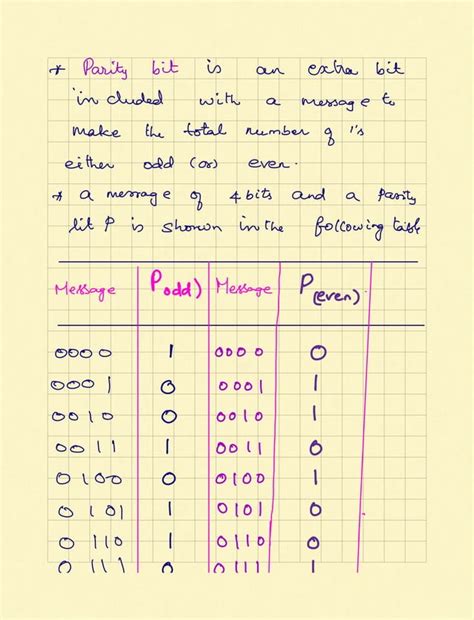 * Parity bit is an extra bit
included with a message to
make the total number of 1's
either odd (or) even.
* a message of 4 bits and a Parity
bit P is shown in the following table
Message P odd) Message P (even)
0000 1 0000 0
0001 0 0001 1
0010 0 0010 1
0011 1 0011 0
0100 0 0100 1
0101 1 0101 0
0110 1 0110 0
0111 0 0111 1